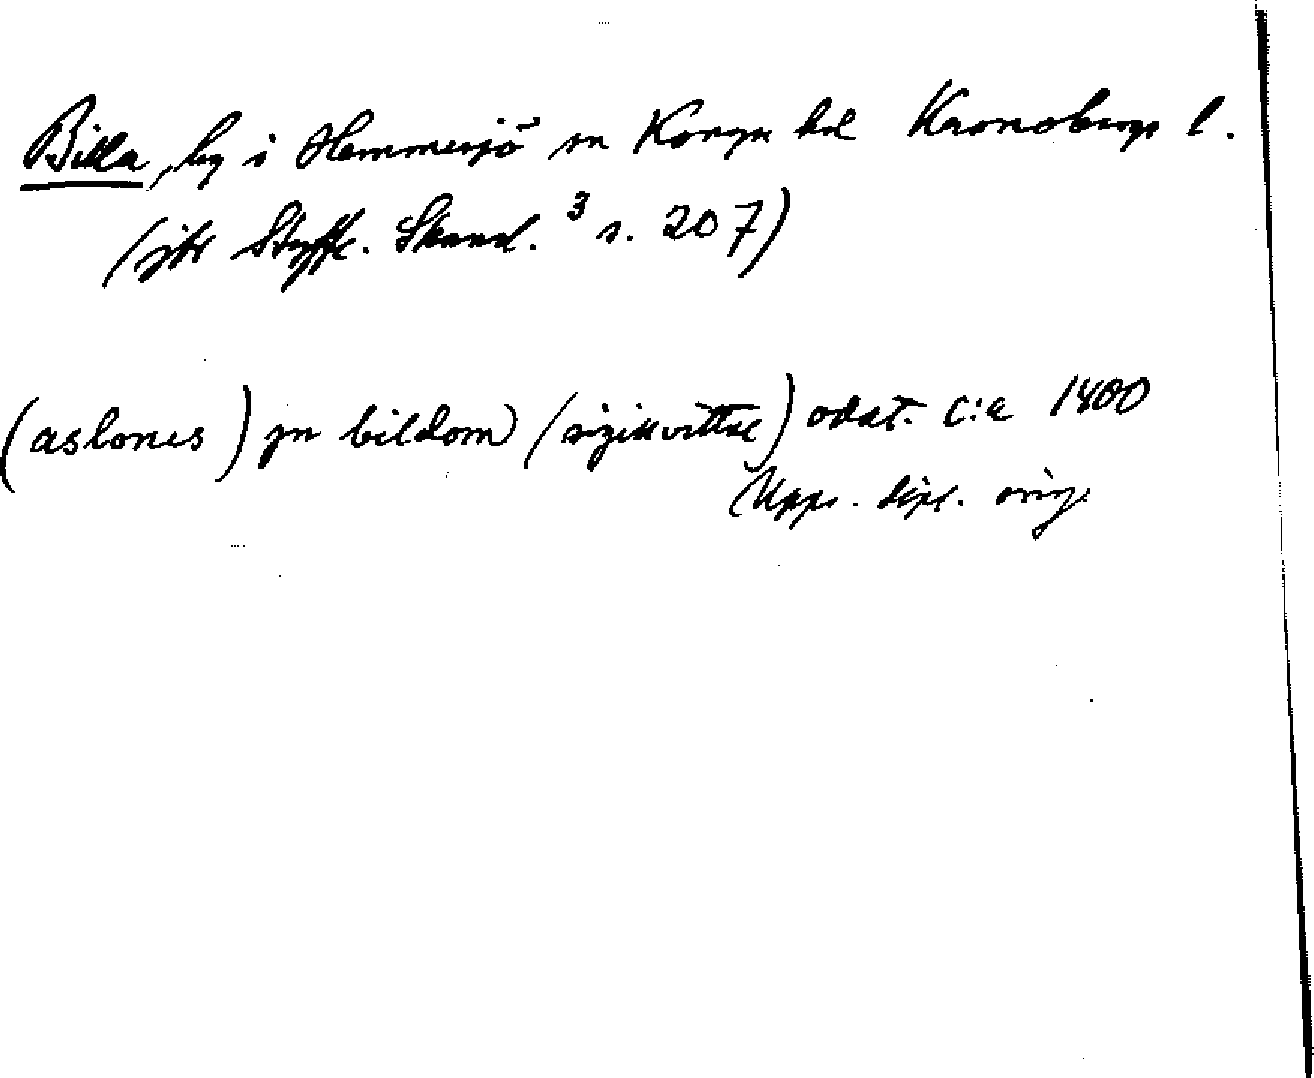 Billa, by i Hemmesjö sn Konga hd Kronobergs l.
(jfr Styffe. Skand. ³ s. 207)
(aslones) jn bildom ( ) odat. c:a 1400
Upps. dipl. orig.